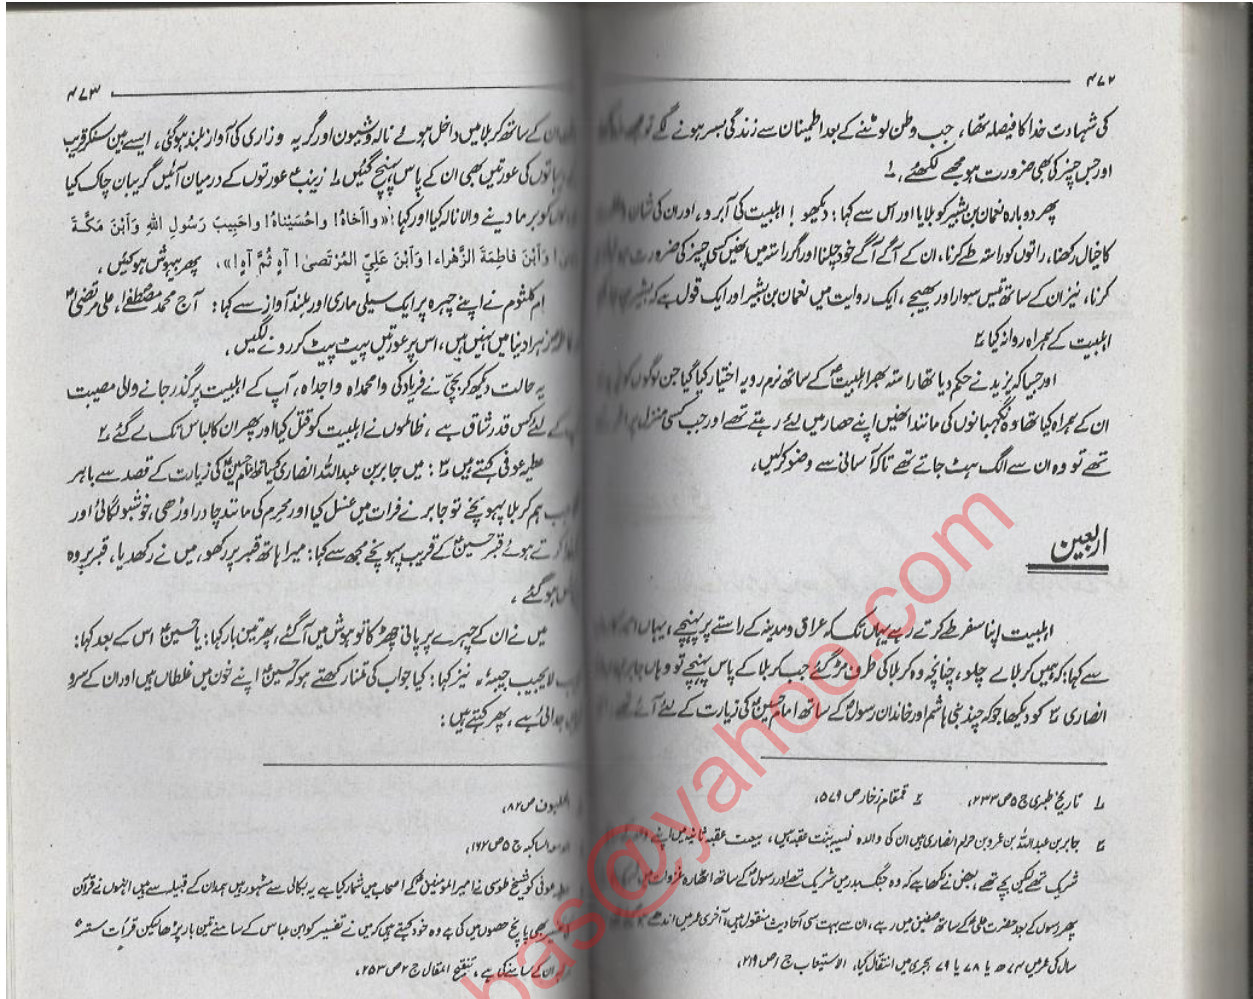 ۴۷۲
کی شہادت خدا کا فیصلہ تھا، جب وطن لوٹنے کے بعد اطمینان سے زندگی بسر ہونے لگے تو مجھے
اور جس چیز کی بھی ضرورت ہو مجھے لکھئے، ۱
پھر دوبارہ نعمان بن بشیر کو بلایا اور اس سے کہا: دیکھو! اہلبیت کی آبرو، اور ان کی شان
کا خیال رکھنا، راتوں کو راستہ طے کرنا، ان کے آگے آگے خود چلنا اور اگر راستہ میں انھیں کسی چیز کی ضرورت ہو
کرنا، نیز ان کے ساتھ تیس سوار اور بھیجے، ایک روایت میں نعمان بن بشیر اور ایک قول ہے کہ بشیر
اہلبیت کے ہمراہ روانہ کیا ۲
اور جیسا کہ یزید نے حکم دیا تھا راستہ بھر اہلبیتؑ کے ساتھ نرم رویہ اختیار کیا گیا جن لوگوں کو
ان کے ہمراہ کیا تھا وہ نگہبانوں کی مانند انھیں اپنے حصار میں لئے رہتے تھے اور جب کسی منزل پر
تھے تو وہ ان سے الگ ہٹ جاتے تھے تاکہ آسانی سے وضو کرلیں،
اربعین
اہلبیت اپنا سفر طے کرتے رہے یہاں تک کہ عراق و مدینہ کے راستے پر پہنچے، یہاں
سے کہا: کہ ہمیں کربلا لے چلو، چنانچہ وہ کربلا کی طرف مڑ گئے جب کربلا کے پاس پہنچے تو وہاں جابر بن
انصاری ۳ کو دیکھا جو کہ چند بنی ہاشم اور خاندان رسولؐ کے ساتھ امام حسینؑ کی زیارت کے لئے آئے تھے
۱ تاریخ طبری ج ۵ ص ۲۳۳، ۲ قمقام زخار ص ۵۷۹،
۳ جابر بن عبداللہ بن عمرو بن حرام انصاری ہیں ان کی والدہ نسیبہ بنت عقبہ ہیں، بیعت عقبہ ثانیہ میں اپنے
شریک تھے لیکن بچے تھے، بعض نے لکھا ہے کہ وہ جنگ بدر میں شریک تھے اور رسولؐ کے ساتھ اٹھارہ غزوات میں
پھر رسول کے بعد حضرت علیؑ کے ساتھ صفین میں رہے، ان سے بہت سی احادیث منقول ہیں، آخری عمر میں اندھے
سال کی عمر میں ۷۴ھ یا ۷۸ یا ۷۹ ہجری میں انتقال کیا، الاستیعاب ج ۱ ص ۲۱۹،
۴۷۳
ان کے ساتھ کربلا میں داخل ہوئے نالہ و شیون اور گریہ و زاری کی آواز بلند ہوگئی، ایسے میں سنکر قریب
کی عورتیں بھی ان کے پاس پہنچ گئیں ۱ زینبؑ عورتوں کے درمیان آئیں گریبان چاک کیا
کو برما دینے والا نالہ کیا اور کہا: «وااَخاهُ! واحُسَيْناهُ! واحَبِيبَ رَسُولِ اللهِ وَابْنَ مَكَّةَ
وَابْنَ فاطِمَةَ الزَّهْراء! وَابْنَ عَلِيِّ المُرْتَضىٰ! آهِ ثُمَّ آهِ!»، پھر بیہوش ہو گئیں،
ام کلثوم نے اپنے چہرہ پر ایک سیلی ماری اور بلند آواز سے کہا: آج محمد مصطفےٰ، علی مرتضیٰؑ
زہرا دنیا میں نہیں ہیں، اس پر عورتیں پیٹ پیٹ کر رونے لگیں،
یہ حالت دیکھ کر بچی نے فریاد کی وامحمداہ واجداہ، آپ کے اہلبیت پر گذر جانے والی مصیبت
کے لئے کس قدر شاق ہے، ظالموں نے اہلبیت کو قتل کیا اور پھر ان کا لباس تک لے گئے، ۲
عطیہ عوفی کہتے ہیں ۳: میں جابر بن عبداللہ انصاری کیساتھ امام حسینؑ کی زیارت کے قصد سے باہر
جب ہم کربلا پہونچے تو جابر نے فرات میں غسل کیا اور محرم کی مانند چادر اوڑھی، خوشبو لگائی اور
کرتے ہوئے قبر حسینؑ کے قریب پہونچے مجھ سے کہا: میرا ہاتھ قبر پر رکھو، میں نے رکھدیا، قبر پر وہ
ہو گئے،
میں نے ان کے چہرے پر پانی چھڑکا تو ہوش میں آگئے، پھر تین بار کہا: یا حسینؑ اس کے بعد کہا:
لا یجیب حبیبہٗ، نیز کہا: کیا جواب کی تمنا رکھتے ہو کہ حسینؑ اپنے خون میں غلطاں ہیں اور ان کے سر و
جدائی ہے، پھر کہتے ہیں:
الملہوف ص ۸۲،
الساکبہ ج ۵ ص ۱۶۲،
عوفی کو شیخ طوسی نے امیرالمؤمنینؑ کے اصحاب میں شمار کیا ہے یہ بکالی سے مشہور ہیں ہمدان کے قبیلہ سے ہیں انہوں نے قرآن
بھی پانچ حصوں میں کی ہے وہ خود کہتے ہیں کہ میں نے تفسیر کو ابن عباس کے سامنے تین بار پڑھا لیکن قرأت ستر
ان کے سامنے کی ہے، تنقیح المقال ج ۲ ص ۲۵۳،
bas@yahoo.com